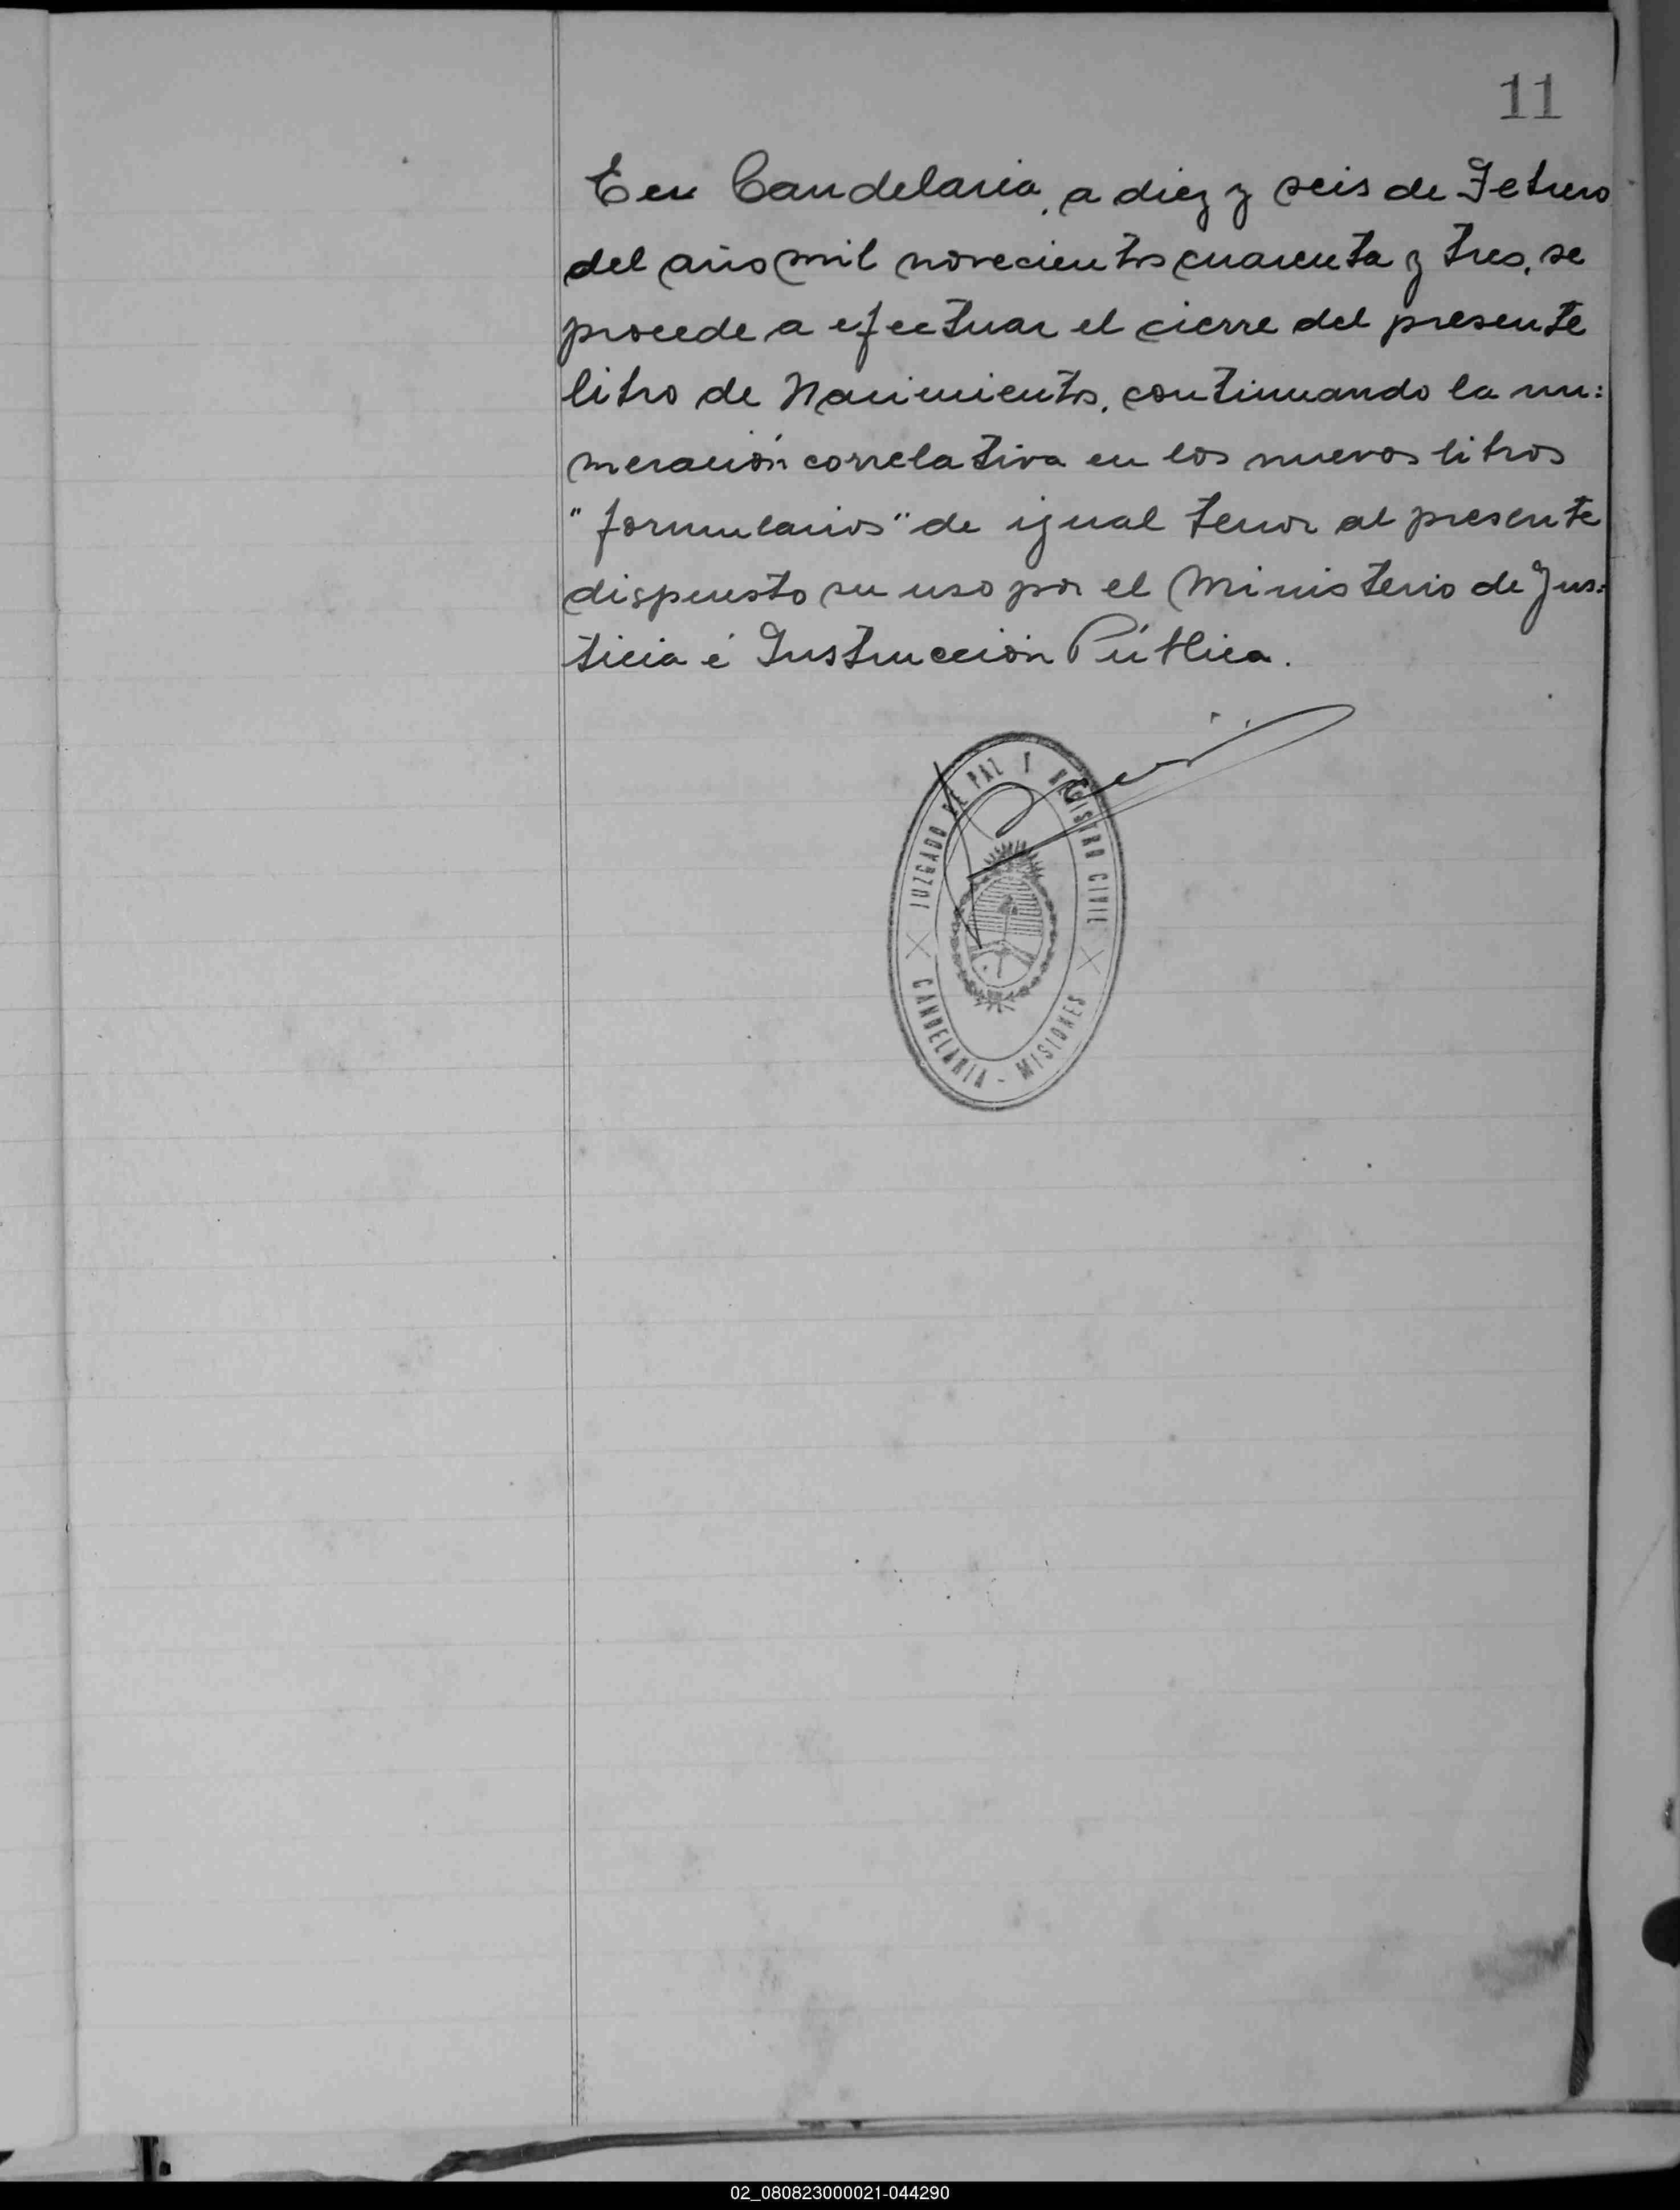 11
En Candelaria, a diez y seis de Febrero
del año mil novecientos cuarenta y tres, se
procede a efectuar el cierre del presente
libro de Nacimientos, continuando la nu:
meración correlativa en los nuevos libros
"formularios" de igual tenor al presente
dispuesto su uso por el Ministerio de Jus:
ticia é Instrucción Pública.
JUZGADO DE PAZ Y REGISTRO CIVIL
CANDELARIA - MISIONES
02_080823000021-044290